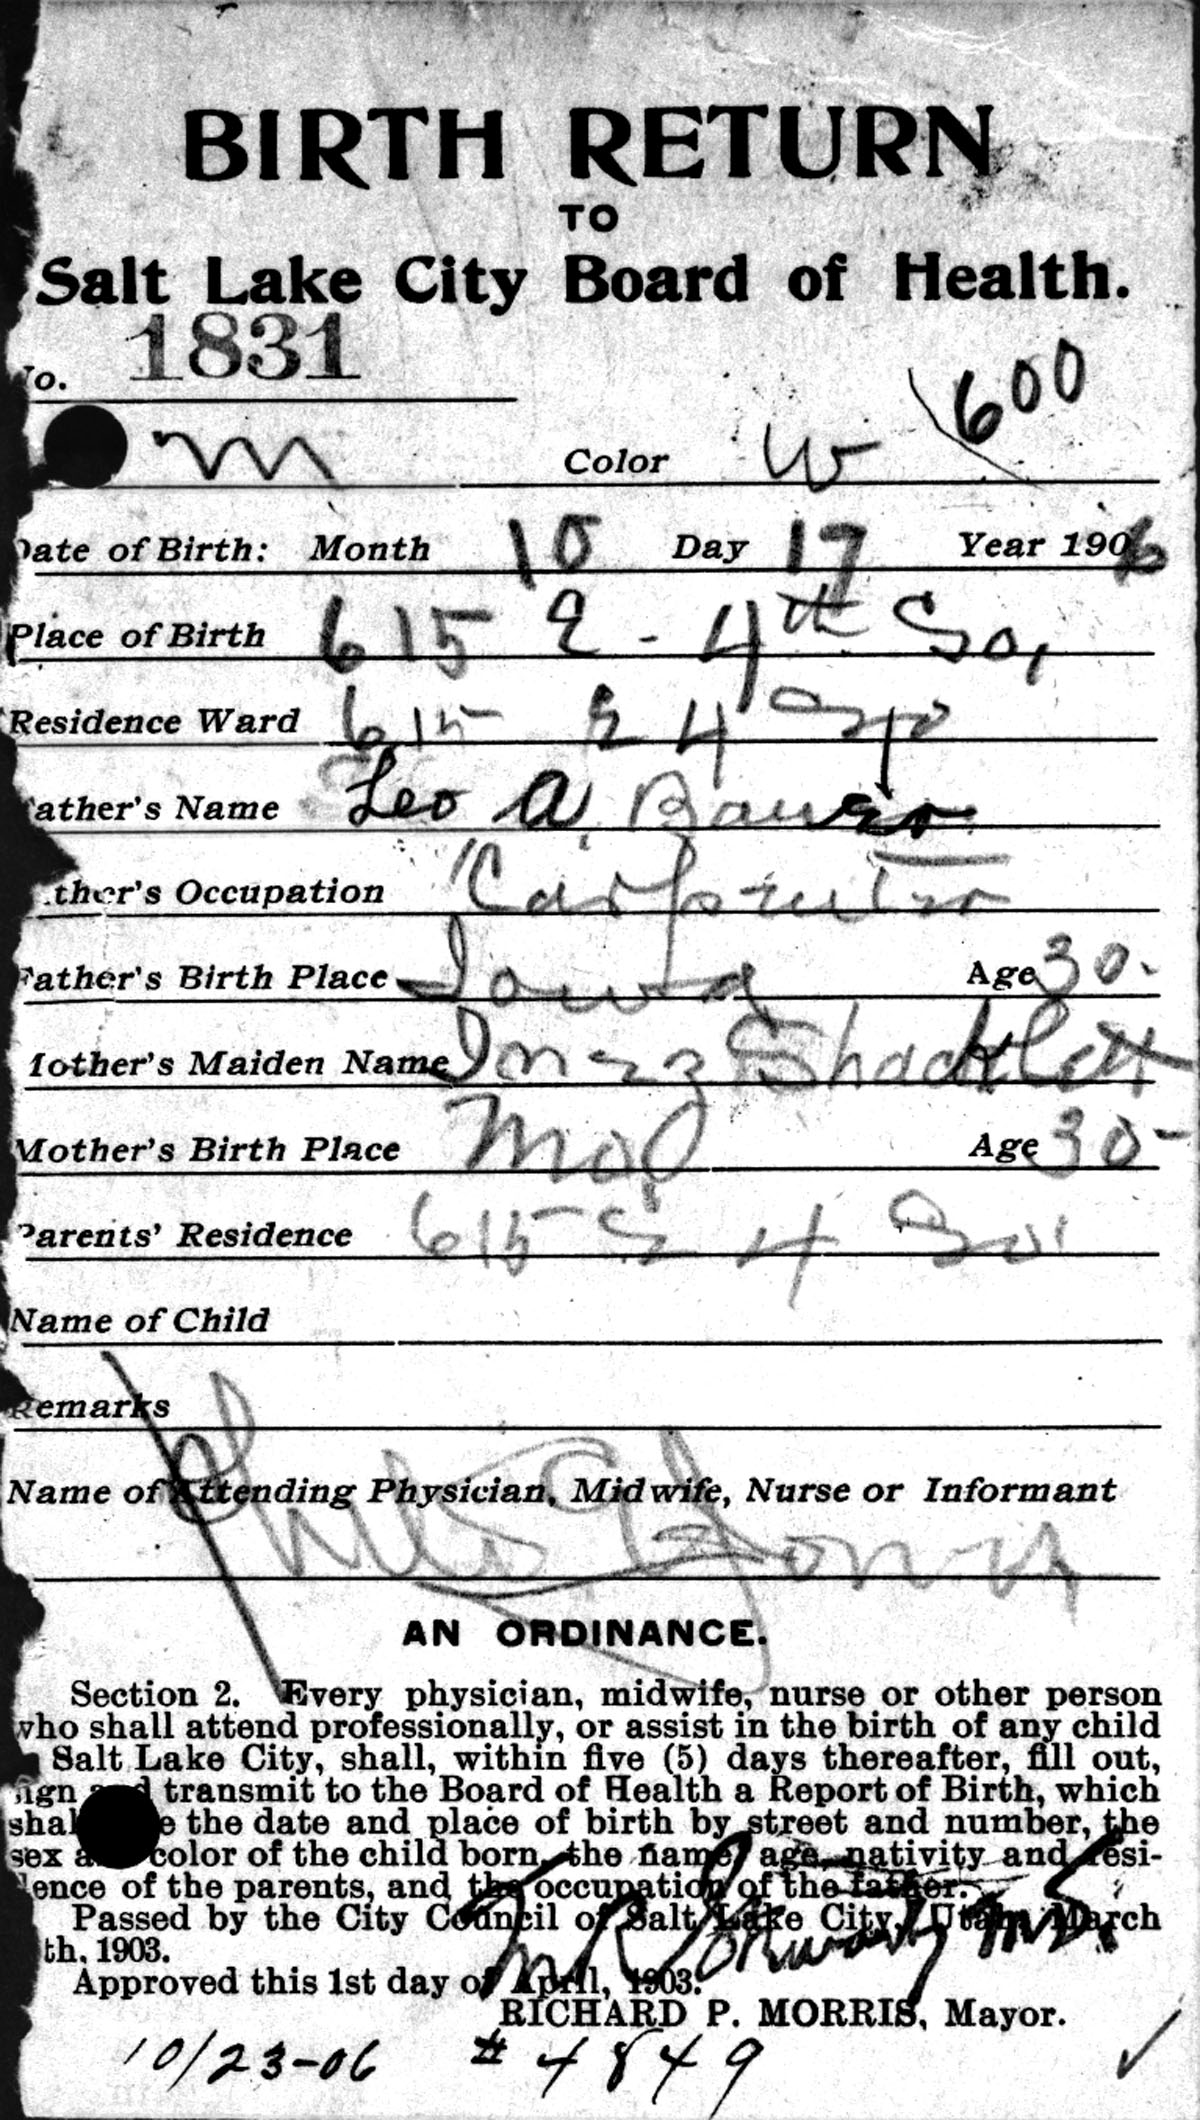 BIRTH RETURN
TO
Salt Lake City Board of Health.
No. 1831
600
m Color W
Date of Birth: Month 10 Day 17 Year 1906
Place of Birth 615 E - 4th So,
Residence Ward 615 E 4 So
Father's Name Leo A. Bauer
Father's Occupation Carpenter
Father's Birth Place Iowa Age 30-
Mother's Maiden Name Inez Shacklett
Mother's Birth Place Mo Age 30-
Parents' Residence 615 E 4 So
Name of Child
Remarks
Name of Attending Physician, Midwife, Nurse or Informant
AN ORDINANCE.
Section 2. Every physician, midwife, nurse or other person
who shall attend professionally, or assist in the birth of any child
Salt Lake City, shall, within five (5) days thereafter, fill out,
sign and transmit to the Board of Health a Report of Birth, which
shal e the date and place of birth by street and number, the
sex a color of the child born, the name, age, nativity and resi-
dence of the parents, and the occupation of the father.
Passed by the City Council of Salt Lake City, Utah, March
th, 1903.
Approved this 1st day of April, 1903.
RICHARD P. MORRIS, Mayor.
10/23-06 # 4849